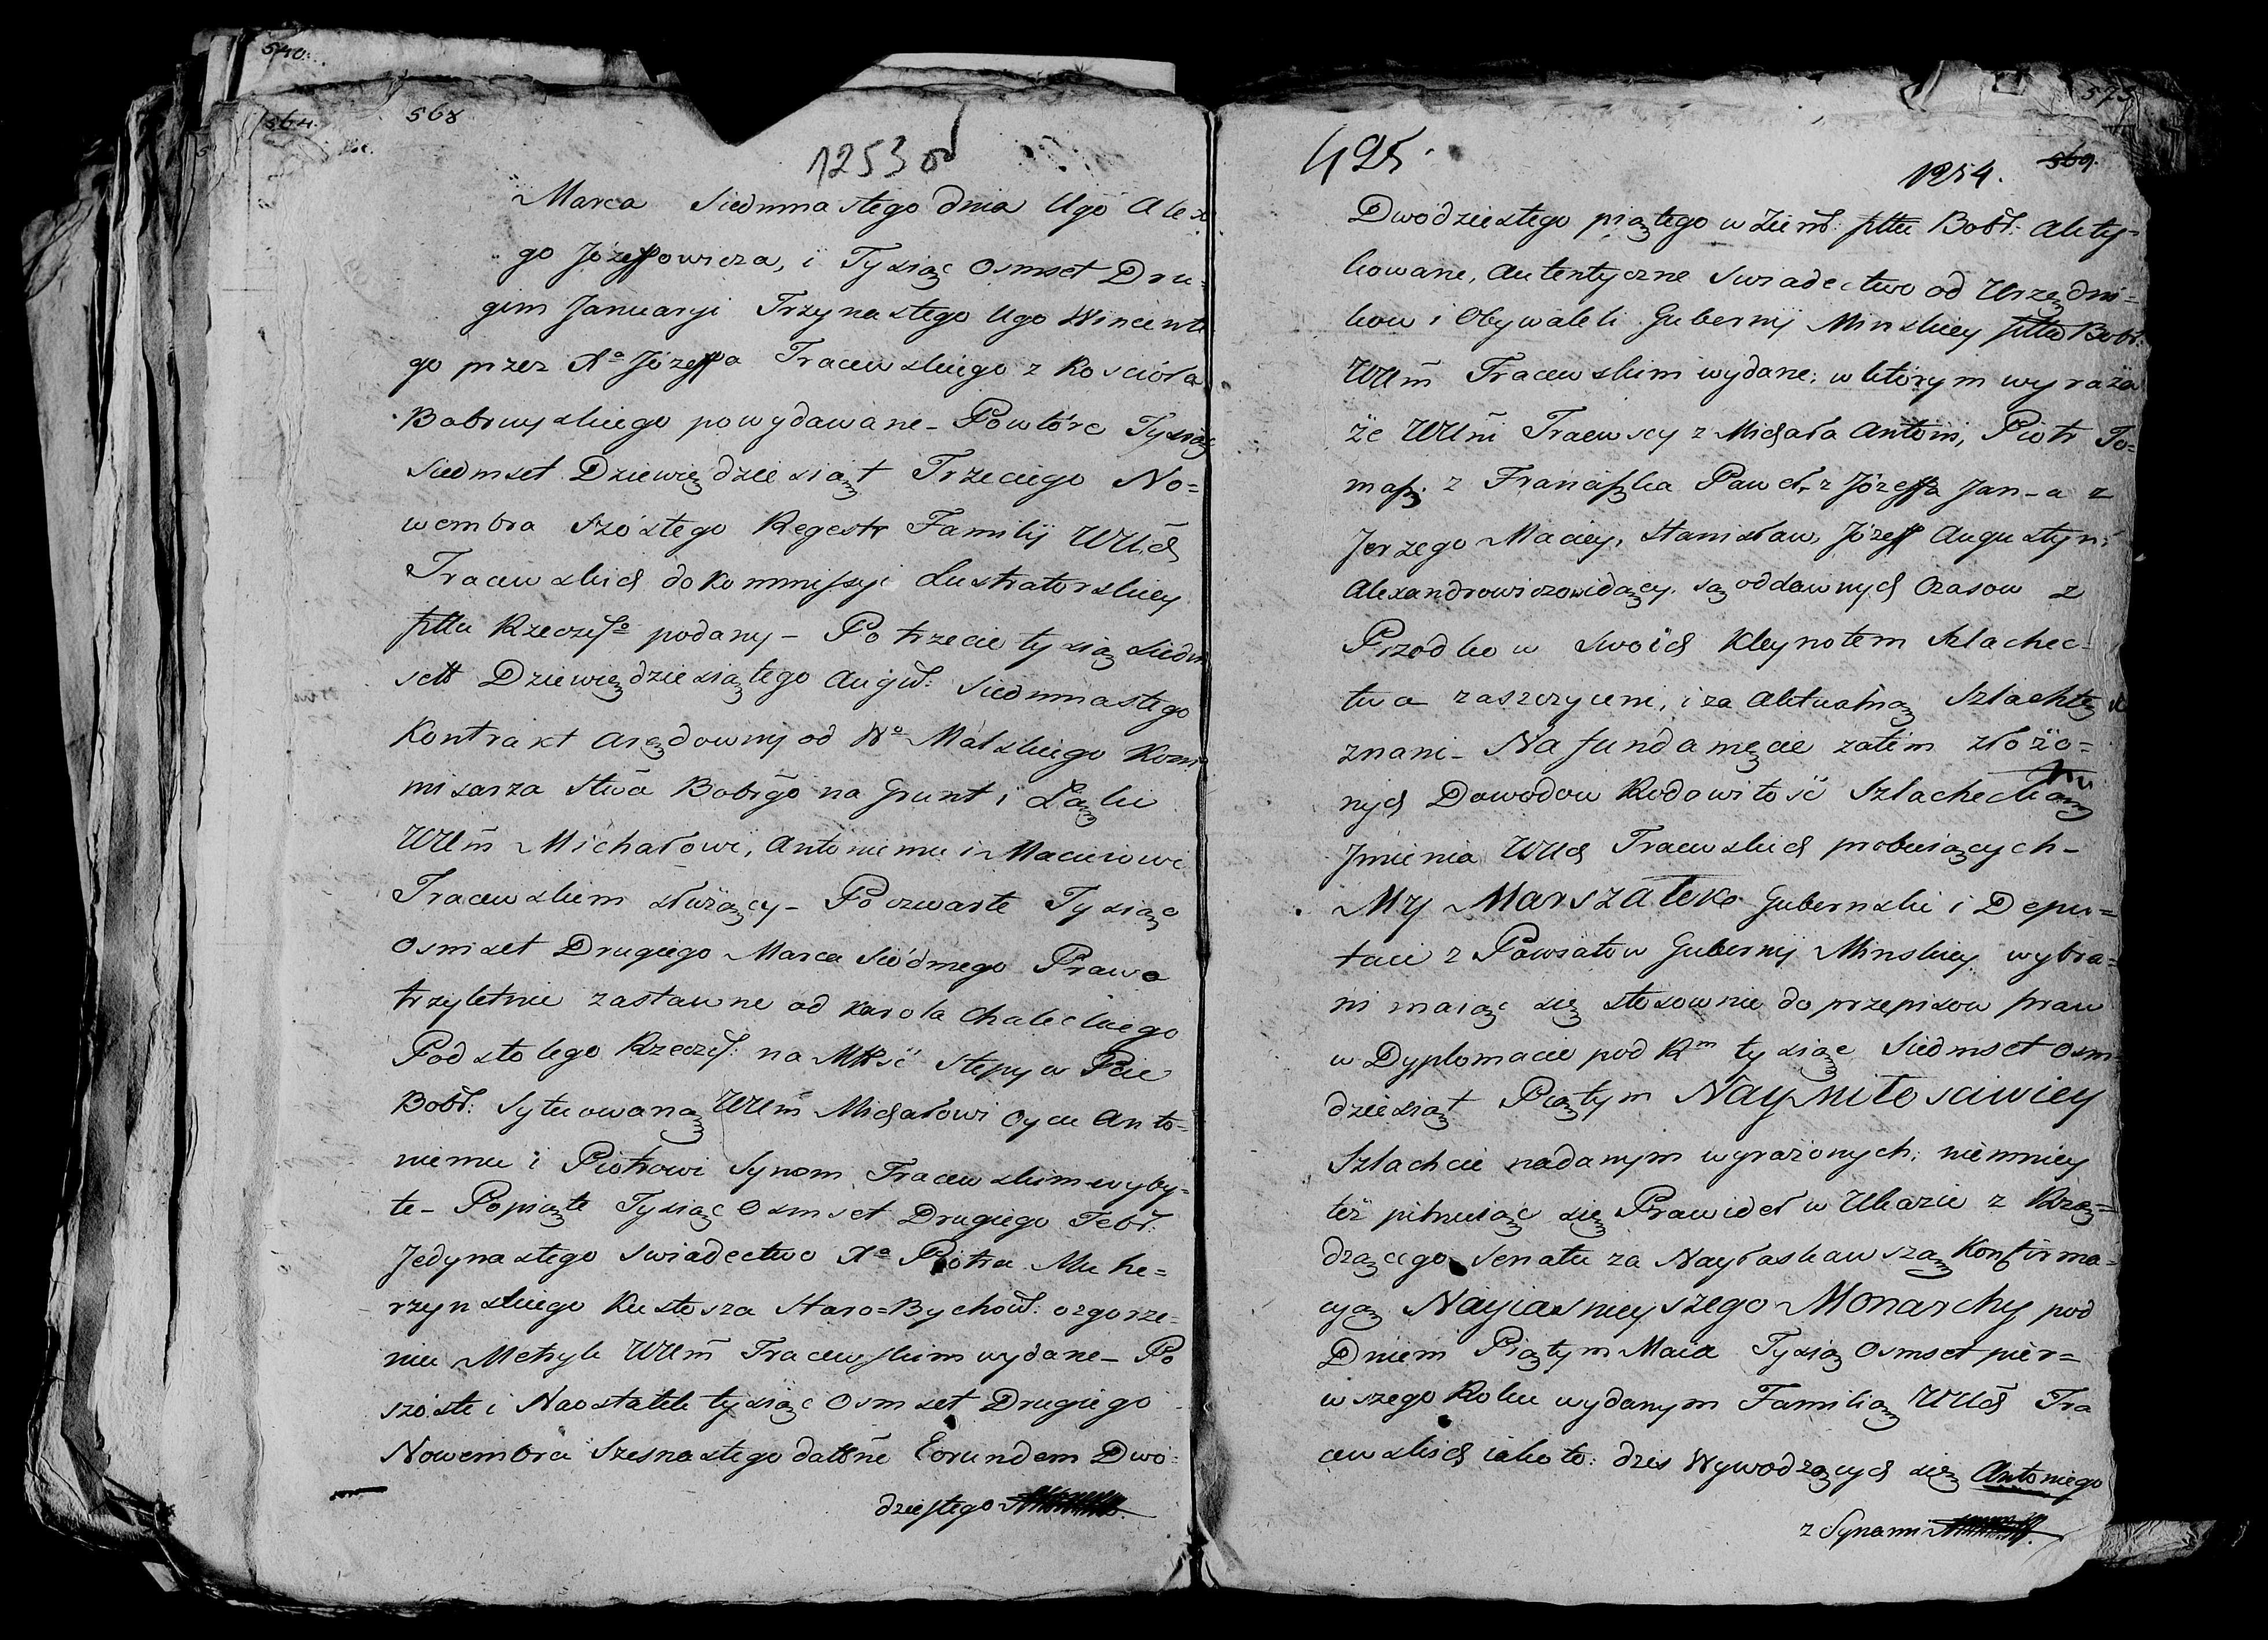 540.
564.
568
12530
Marca Siedmnastego dnia Ugo Alex
go Józeffowicza, i Tysiąc Osmset Dru=
gim Januaryi Trzynastego Ugo Wincent
go przez Xa Józeffa Tracewskiego z Kościoła
Bobruyskiego powydawane - Powtóre Tysiąc
Siedmset Dziewiędziesiąt Trzeciego No=
wembra Szóstego Regestr Familij WUch
Tracewskich do Kommissyi Lustratorskiey
pttu Rzeczgo podany - Potrzecie tysiąc siedm
sett Dziewiędziesiątego Augu: Siedmnastego
Kontrakt arędowny od Wo Malskiego Kom
misarza Stwa Bobrgo na Grunt i Łąki
WUm Michałowi, Antoniemu i Maciejowi
Tracewskim służący - Poczwarte Tysiąc
Osmset Drugiego Marca Siódmego Prawo
trzyletnie zastawne od Karola Chaleckiego
Podstolego Rzeczy: na Mttść Stepy w Pcie
Bobr: Sytuowaną WUm Michałowi Oycu Anto=
niemu i Piotrowi Synom Tracewskim wyby=
te - Popiąte Tysiąc Osmset Drugiego Febr:
Jedynastego Swiadectwo Xa Piotra Muke=
rzynskiego Kustosza Staro=Bychow: ozgorze=
niu Metryk WUm Tracewskim wydane - Po
szóste i Naostatek tysiąc Osmset Drugiego
Nowembra Szesnastego dattne Eorundem Dwó=
dziestego
575
425.
1254.
569.
Dwódziestego piątego w Ziem: pttu Bobr: Akty=
kowane, Autentyczne Swiadectwo od Urzędni=
kow i Obywateli Gubernij Minskiey pttu Bobr:
WUm Tracewskim wydane; w którym wyraża
że WUni Tracewscy z Michała Antoni, Piotr To=
masz z Franciszka Paweł, z Józeffa Jan - a z
Jerzego Maciey, Stanisław, Józeff Augustyn i
Alexandrowi czowidący są oddawnych czasow z
Przodkow Swoich Kleynotem Szlachec=
twa zaszczyceni, i za Aktualną Szlachtę
znani - Na fundamęcie zatim złożo=
nych Dowodow Rodowitość Szlachecką
Jmienia WUch Tracewskich probuiących -
My Marszałek Gubernski i Depu=
taci z Powiatow Gubernij Minskiey wybra=
ni maiąc się stosownie do przepisow praw
w Dyplomacie pod Rm tysiąc Siedmset Osm=
dziesiąt Piątym Naymiłosciwiey
Szlachcie nadanym wyrażonych; niemniey
też pilnuiąc się Prawideł w Ukazie z Rzą=
dzącego Senatu za Nayłaskawszą Konfirma=
cyą Nayiasnieyszego Monarchy pod
Dniem Piątym Maia Tysiąc Osmset pier=
wszego Roku wydanym Familią WUch Tra
cewskich iako to: dzis Wywodzących się Antoniego
z Synami